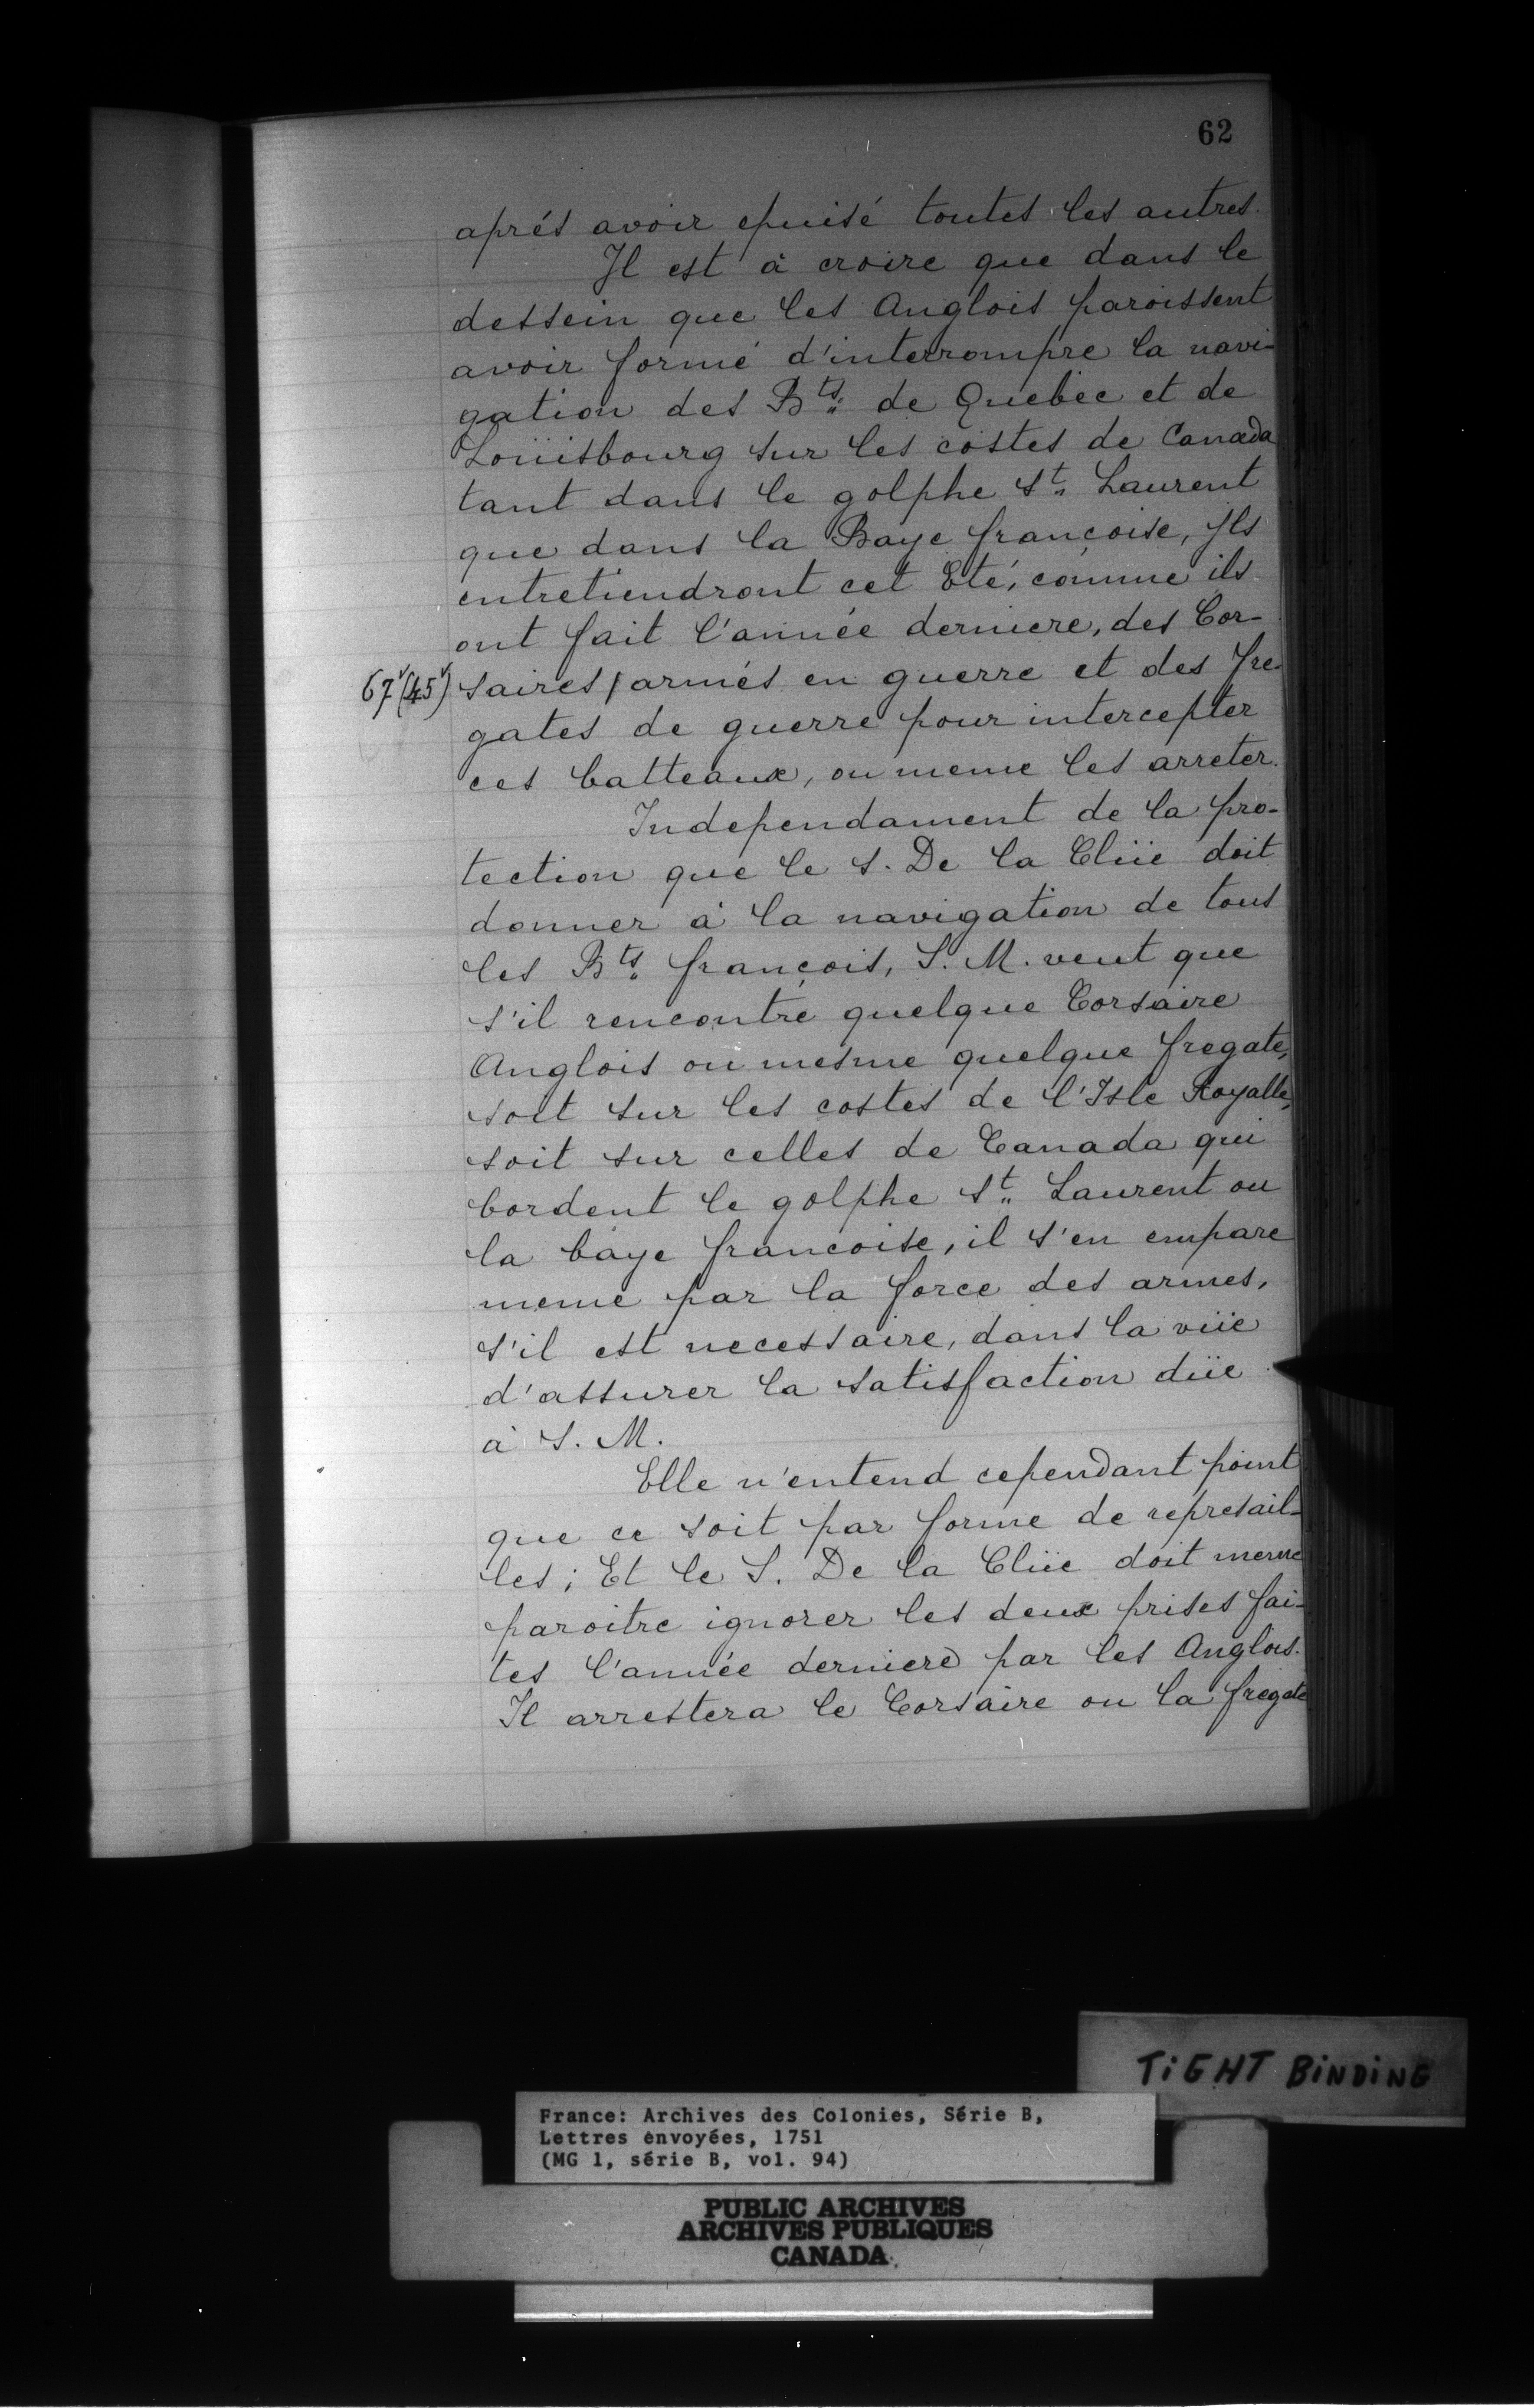 62
aprés avoir epuisé toutes les autres.
Il est à croire que dans le
dessein que les Anglois paroissent
avoir formé d'interrompre la navi-
gation des Bts. de Quebec et de
Loüisbourg sur les costes de Canada
tant dans le golphe St. Laurent
que dans la Baye françoise, Ils
entretiendront cet Eté, comme ils
ont fait l'année derniere, des Cor-
67v(45v) saires/armés en guerre et des fre-
gates de guerre pour intercepter
ces batteaux, ou meme les arreter.
Independament de la pro-
tection que le S. De la Clüe doit
donner à la navigation de tous
les Bts. françois, S. M. veut que
s'il rencontre quelque Corsaire
Anglois ou mesme quelque fregate,
soit sur les costes de l'Isle Royalle,
soit sur celles de Canada qui
bordent le golphe St. Laurent ou
la baye francoise, il s'en empare
meme par la force des armes,
s'il est necessaire, dans la vüe
d'assurer la satisfaction düe
à S. M.
Elle n'entend cependant point
que ce soit par forme de represail-
les; Et le S. De la Clüe doit meme
paroitre ignorer les deux prises fai-
tes l'année derniere par les Anglois.
Il arrestera le Corsaire ou la fregate
TIGHT BINDING
France: Archives des Colonies, Série B,
Lettres envoyées, 1751
(MG 1, série B, vol. 94)
PUBLIC ARCHIVES
ARCHIVES PUBLIQUES
CANADA